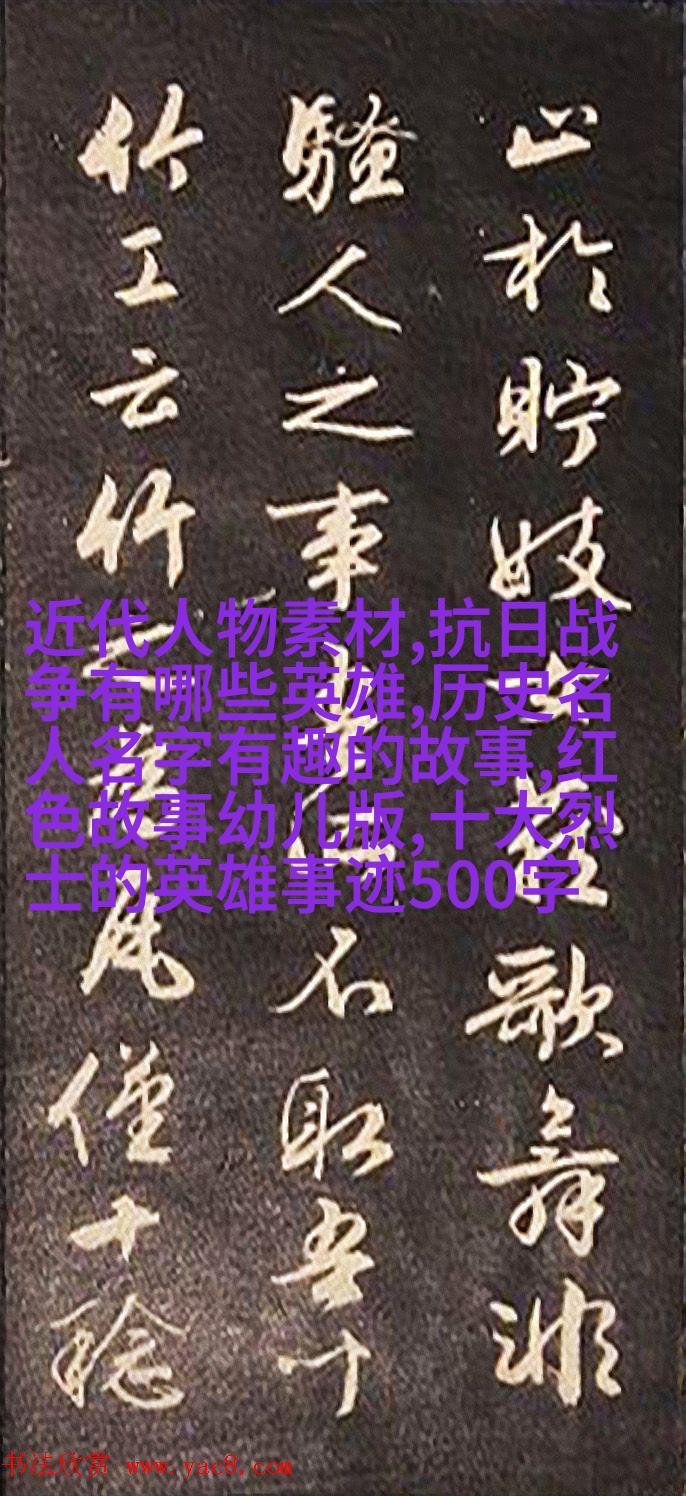 止於貯妓女藏歌舞非
騷人之事不取吾聞
竹工云竹瓦僅十稔
近代人物素材,抗日战
争有哪些英雄,历史名
人名字有趣的故事,红
色故事幼儿版,十大烈
士的英雄事迹500字
书法欣赏 www.yac8.com